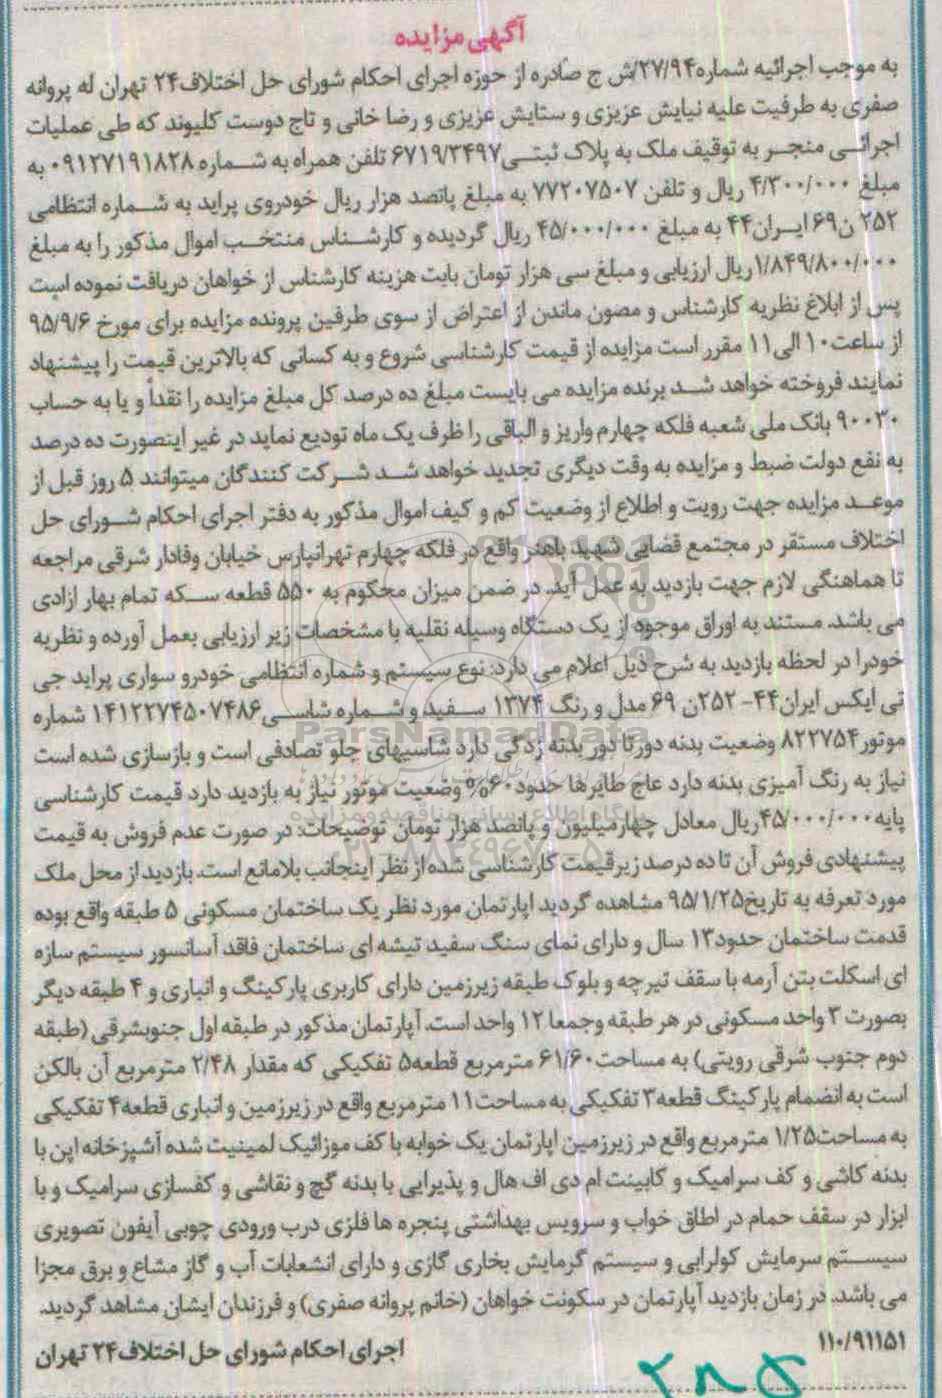 آگهی مزایده
به موجب اجرائیه شماره۲۷/۹۴/ش ج صادره از حوزه اجرای احکام شورای حل اختلاف۲۴ تهران له پروانه
صفری به طرفیت علیه نیایش عزیزی و ستایش عزیزی و رضا خانی و تاج دوست کلیوند که طی عملیات
اجرائی منجر به توقیف ملک به پلاک ثبتی۶۷۱۹/۳۴۹۷ تلفن همراه به شماره ۰۹۱۲۷۱۹۱۸۲۸ به
مبلغ ۴/۳۰۰/۰۰۰ ریال و تلفن ۷۷۲۰۷۵۰۷ به مبلغ پانصد هزار ریال خودروی پراید به شماره انتظامی
۲۵۲ ن۶۹ ایران۴۴ به مبلغ ۴۵/۰۰۰/۰۰۰ ریال گردیده و کارشناس منتخب اموال مذکور را به مبلغ
۱/۸۴۹/۸۰۰/۰۰۰ریال ارزیابی و مبلغ سی هزار تومان بابت هزینه کارشناس از خواهان دریافت نموده است
پس از ابلاغ نظریه کارشناس و مصون ماندن از اعتراض از سوی طرفین پرونده مزایده برای مورخ ۹۵/۹/۶
از ساعت۱۰ الی۱۱ مقرر است مزایده از قیمت کارشناسی شروع و به کسانی که بالاترین قیمت را پیشنهاد
نمایند فروخته خواهد شد برنده مزایده می بایست مبلغ ده درصد کل مبلغ مزایده را نقداً و یا به حساب
۹۰۰۳۰ بانک ملی شعبه فلکه چهارم واریز و الباقی را ظرف یک ماه تودیع نماید در غیر اینصورت ده درصد
به نفع دولت ضبط و مزایده به وقت دیگری تجدید خواهد شد شرکت کنندگان میتوانند ۵ روز قبل از
موعد مزایده جهت رویت و اطلاع از وضعیت کم و کیف اموال مذکور به دفتر اجرای احکام شورای حل
اختلاف مستقر در مجتمع قضایی شهید باهنر واقع در فلکه چهارم تهرانپارس خیابان وفادار شرقی مراجعه
تا هماهنگی لازم جهت بازدید به عمل آید. در ضمن میزان محکوم به ۵۵۰ قطعه سکه تمام بهار ازادی
می باشد. مستند به اوراق موجود از یک دستگاه وسیله نقلیه با مشخصات زیر ارزیابی بعمل آورده و نظریه
خودرا در لحظه بازدید به شرح ذیل اعلام می دارد: نوع سیستم و شماره انتظامی خودرو سواری پراید جی
تی ایکس ایران۴۴- ۲۵۲ن ۶۹ مدل و رنگ ۱۳۷۴ سفید و شماره شاسی۱۴۱۲۲۷۴۵۰۷۴۸۶ شماره
موتور۸۲۲۷۵۴ وضعیت بدنه دورتا دور بدنه زدگی دارد شاسیهای جلو تصادفی است و بازسازی شده است
نیاز به رنگ آمیزی بدنه دارد عاج طایرها حدود۶۰% وضعیت موتور نیاز به بازدید دارد قیمت کارشناسی
پایه۴۵/۰۰۰/۰۰۰ریال معادل چهارمیلیون و پانصد هزار تومان توضیحات: در صورت عدم فروش به قیمت
پیشنهادی فروش آن تا ده درصد زیرقیمت کارشناسی شده از نظر اینجانب بلامانع است. بازدید از محل ملک
مورد تعرفه به تاریخ۹۵/۱/۲۵ مشاهده گردید اپارتمان مورد نظر یک ساختمان مسکونی ۵ طبقه واقع بوده
قدمت ساختمان حدود۱۳ سال و دارای نمای سنگ سفید تیشه ای ساختمان فاقد آسانسور سیستم سازه
ای اسکلت بتن آرمه با سقف تیرچه و بلوک طبقه زیرزمین دارای کاربری پارکینگ و انباری و ۴ طبقه دیگر
بصورت ۳ واحد مسکونی در هر طبقه وجمعا ۱۲ واحد است. آپارتمان مذکور در طبقه اول جنوبشرقی (طبقه
دوم جنوب شرقی رویتی) به مساحت۶۱/۶۰ مترمربع قطعه۵ تفکیکی که مقدار ۲/۴۸ مترمربع آن بالکن
است به انضمام پارکینگ قطعه۳ تفکیکی به مساحت۱۱ مترمربع واقع در زیرزمین و انباری قطعه۴ تفکیکی
به مساحت۱/۲۵ مترمربع واقع در زیرزمین اپارتمان یک خوابه با کف موزائیک لمینیت شده آشپزخانه اپن با
بدنه کاشی و کف سرامیک و کابینت ام دی اف هال و پذیرایی با بدنه گچ و نقاشی و کفسازی سرامیک و با
ابزار در سقف حمام در اطاق خواب و سرویس بهداشتی پنجره ها فلزی درب ورودی چوبی آیفون تصویری
سیستم سرمایش کولرابی و سیستم گرمایش بخاری گازی و دارای انشعابات آب و گاز مشاع و برق مجزا
می باشد. در زمان بازدید آپارتمان در سکونت خواهان (خانم پروانه صفری) و فرزندان ایشان مشاهد گردید.
۱۱۰/۹۱۱۵۱
اجرای احکام شورای حل اختلاف۲۴ تهران
ParsNamadData
۲۸۵